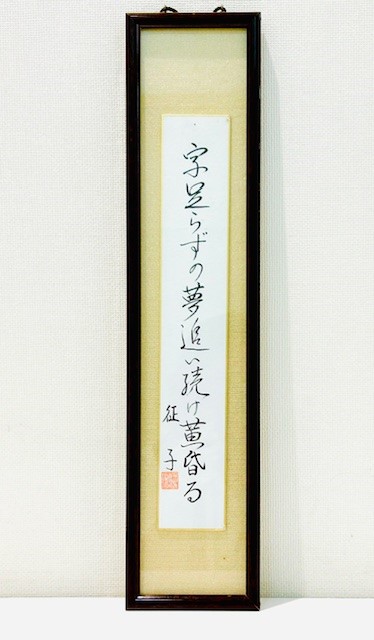 字足らずの夢追い続け黄昏る
征子